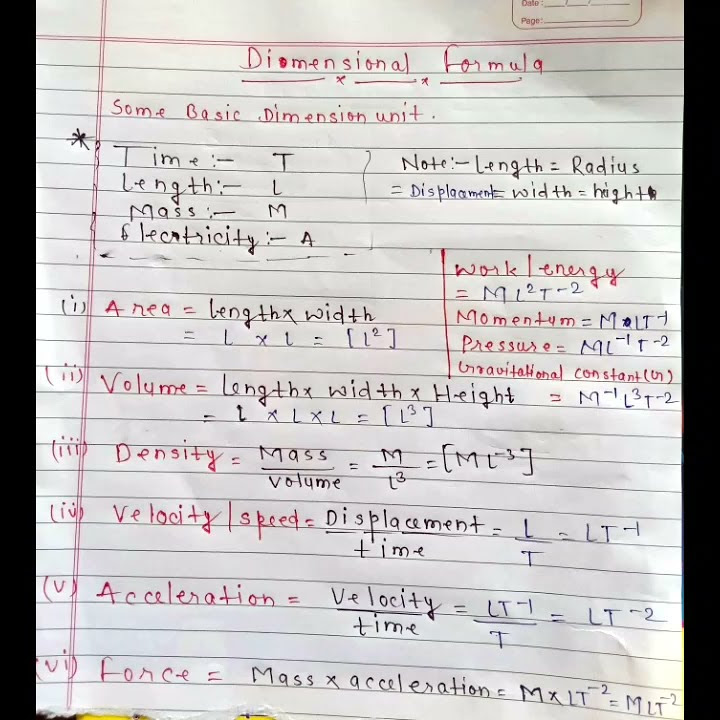 Date :
Page:
Diomensional Formula
Some Basic Dimension unit.
* Time :- T
Length :- L
Mass :- M
Electricity :- A
Note:- Length = Radius
= Displacment = width = height
Work / energy
= ML²T⁻²
Momentum = MLT⁻¹
Pressure = ML⁻¹T⁻²
Gravitational constant (G)
= M⁻¹L³T⁻²
(i) Area = Length x width
= L x L = [L²]
(ii) Volume = Length x width x Height
= L x L x L = [L³]
(iii) Density = Mass / Volume = M / L³ = [ML⁻³]
(iv) Velocity / speed = Displacement / time = L / T = LT⁻¹
(v) Acceleration = Velocity / time = LT⁻¹ / T = LT⁻²
(vi) Force = Mass x acceleration = M x LT⁻² = MLT⁻²